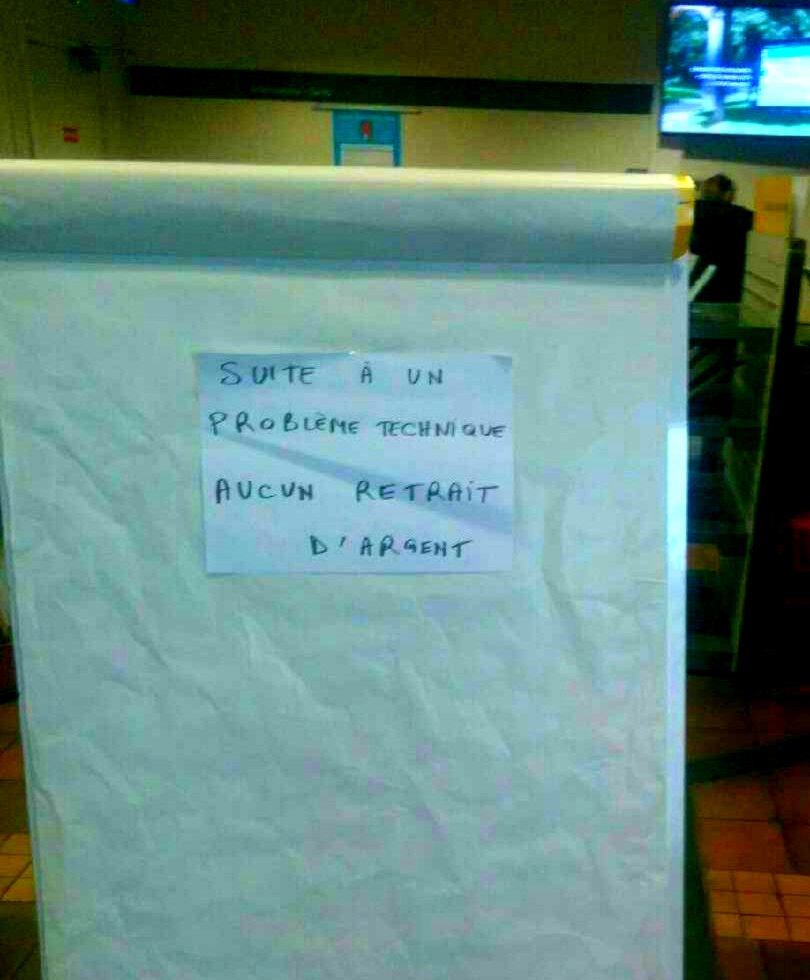 SUITE À UN
PROBLÈME TECHNIQUE
AUCUN RETRAIT
D'ARGENT